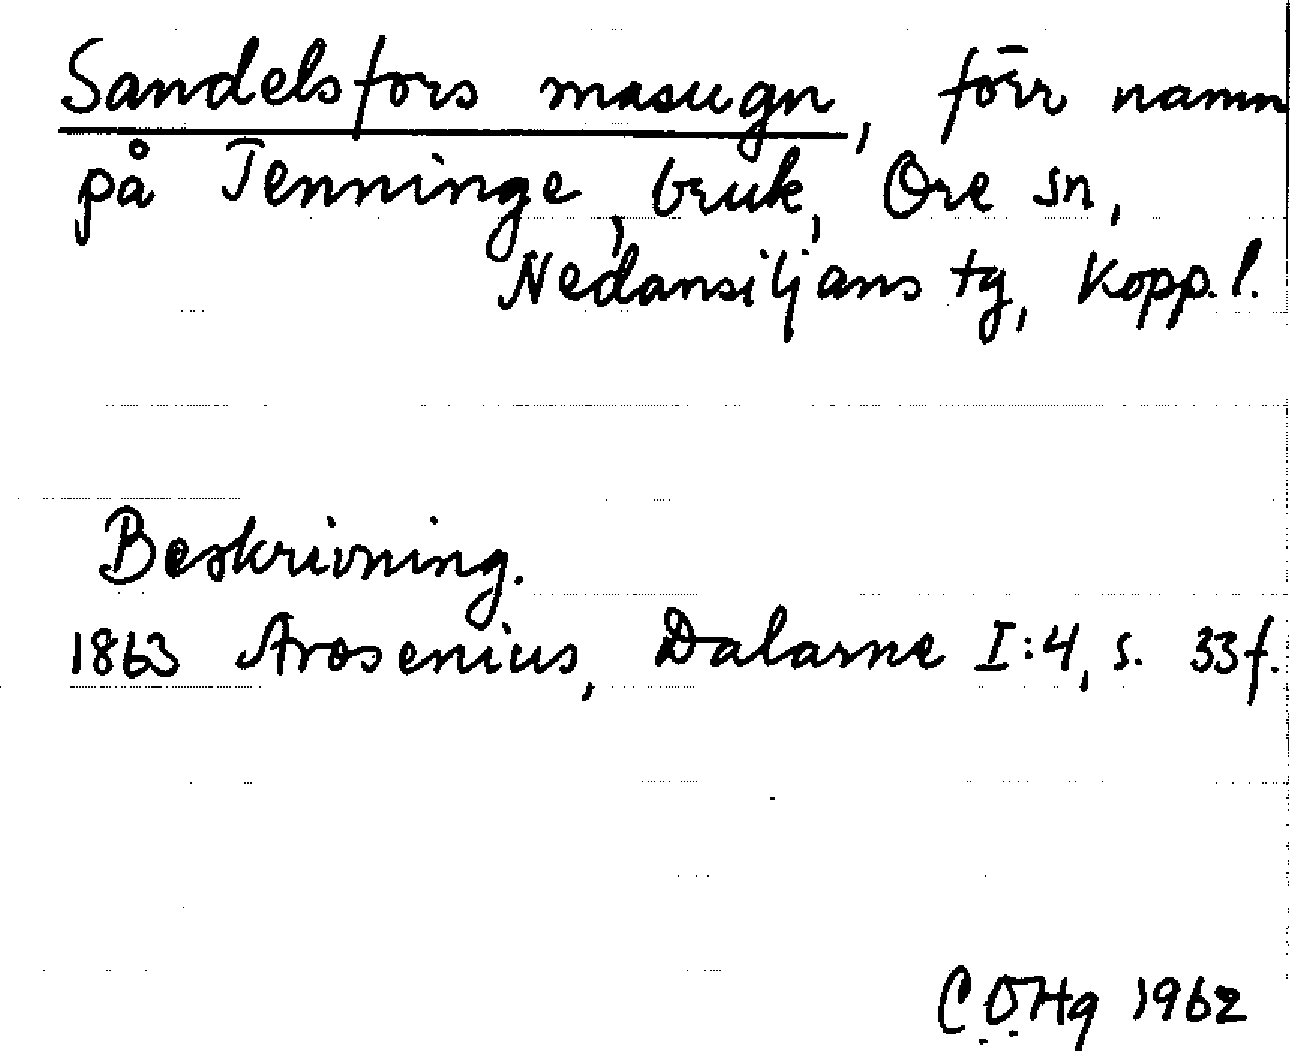 Sandelsfors masugn, förr namn
på Tenninge, bruk, Ore sn,
Nedansiljans tg, Kopp. l.
Beskrivning.
1863 Arosenius, Dalarne I:4, s. 33 f.
C. O. Hg 1962